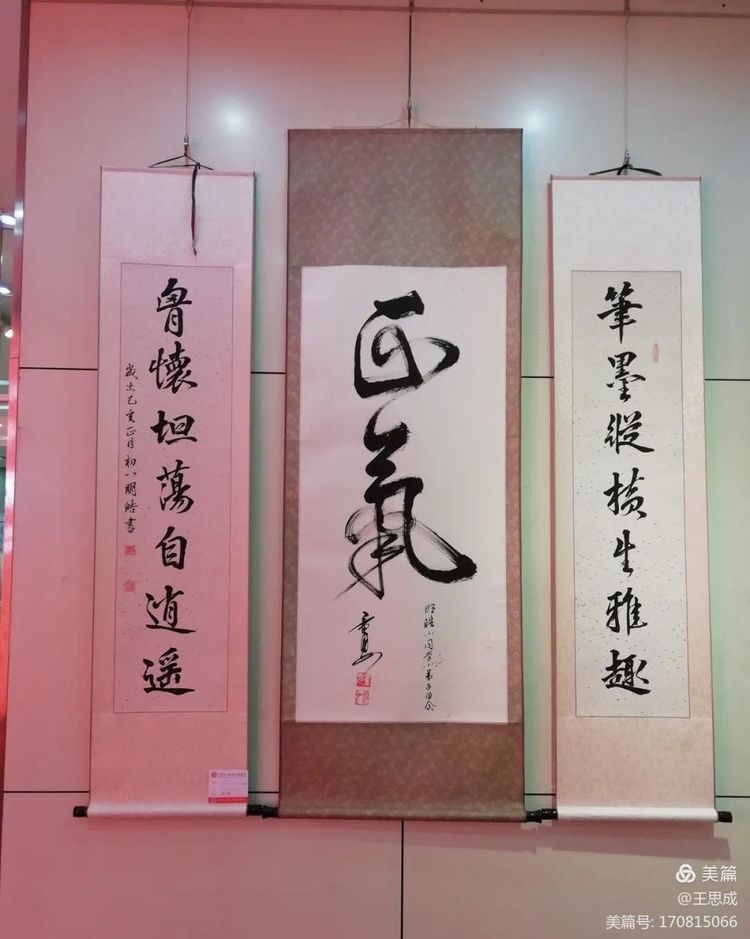 筆墨縱橫生雅趣
正氣
胷懷坦蕩自逍遥
歲次己亥正月初八明皓書
美篇
@王思成
美篇号: 170815066